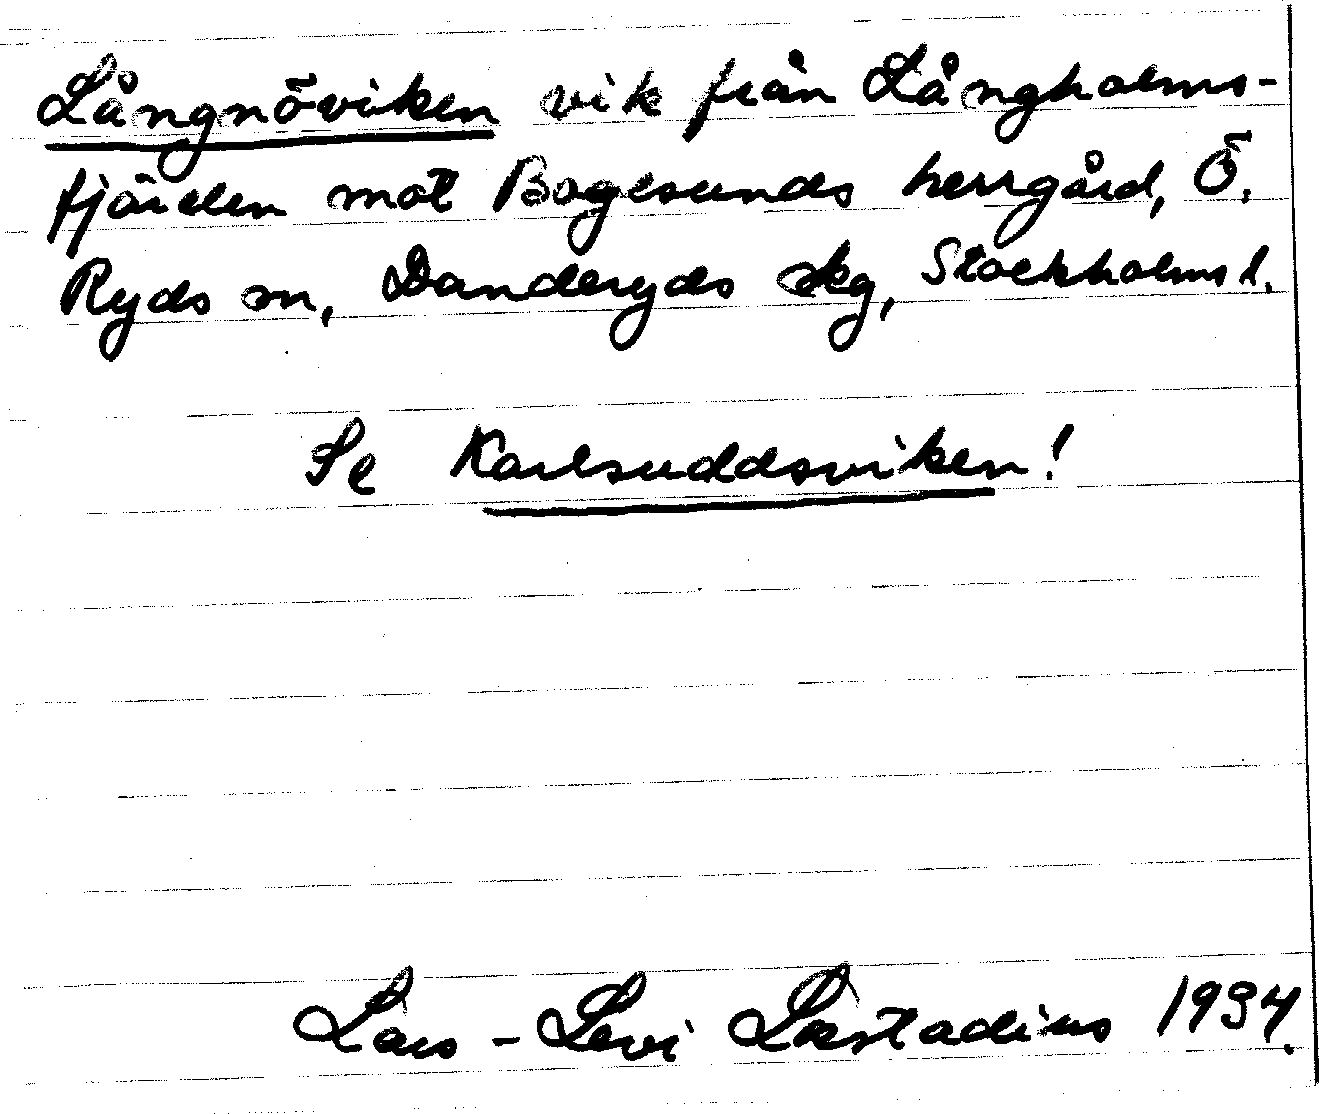 Långnöviken vik från Långholms-
fjärden mot Bogesunds herrgård, Ö.
Ryds sn, Danderyds skg, Stockholms l.
Se Karlsuddsviken!
Lars-Levi Læstadius 1934.